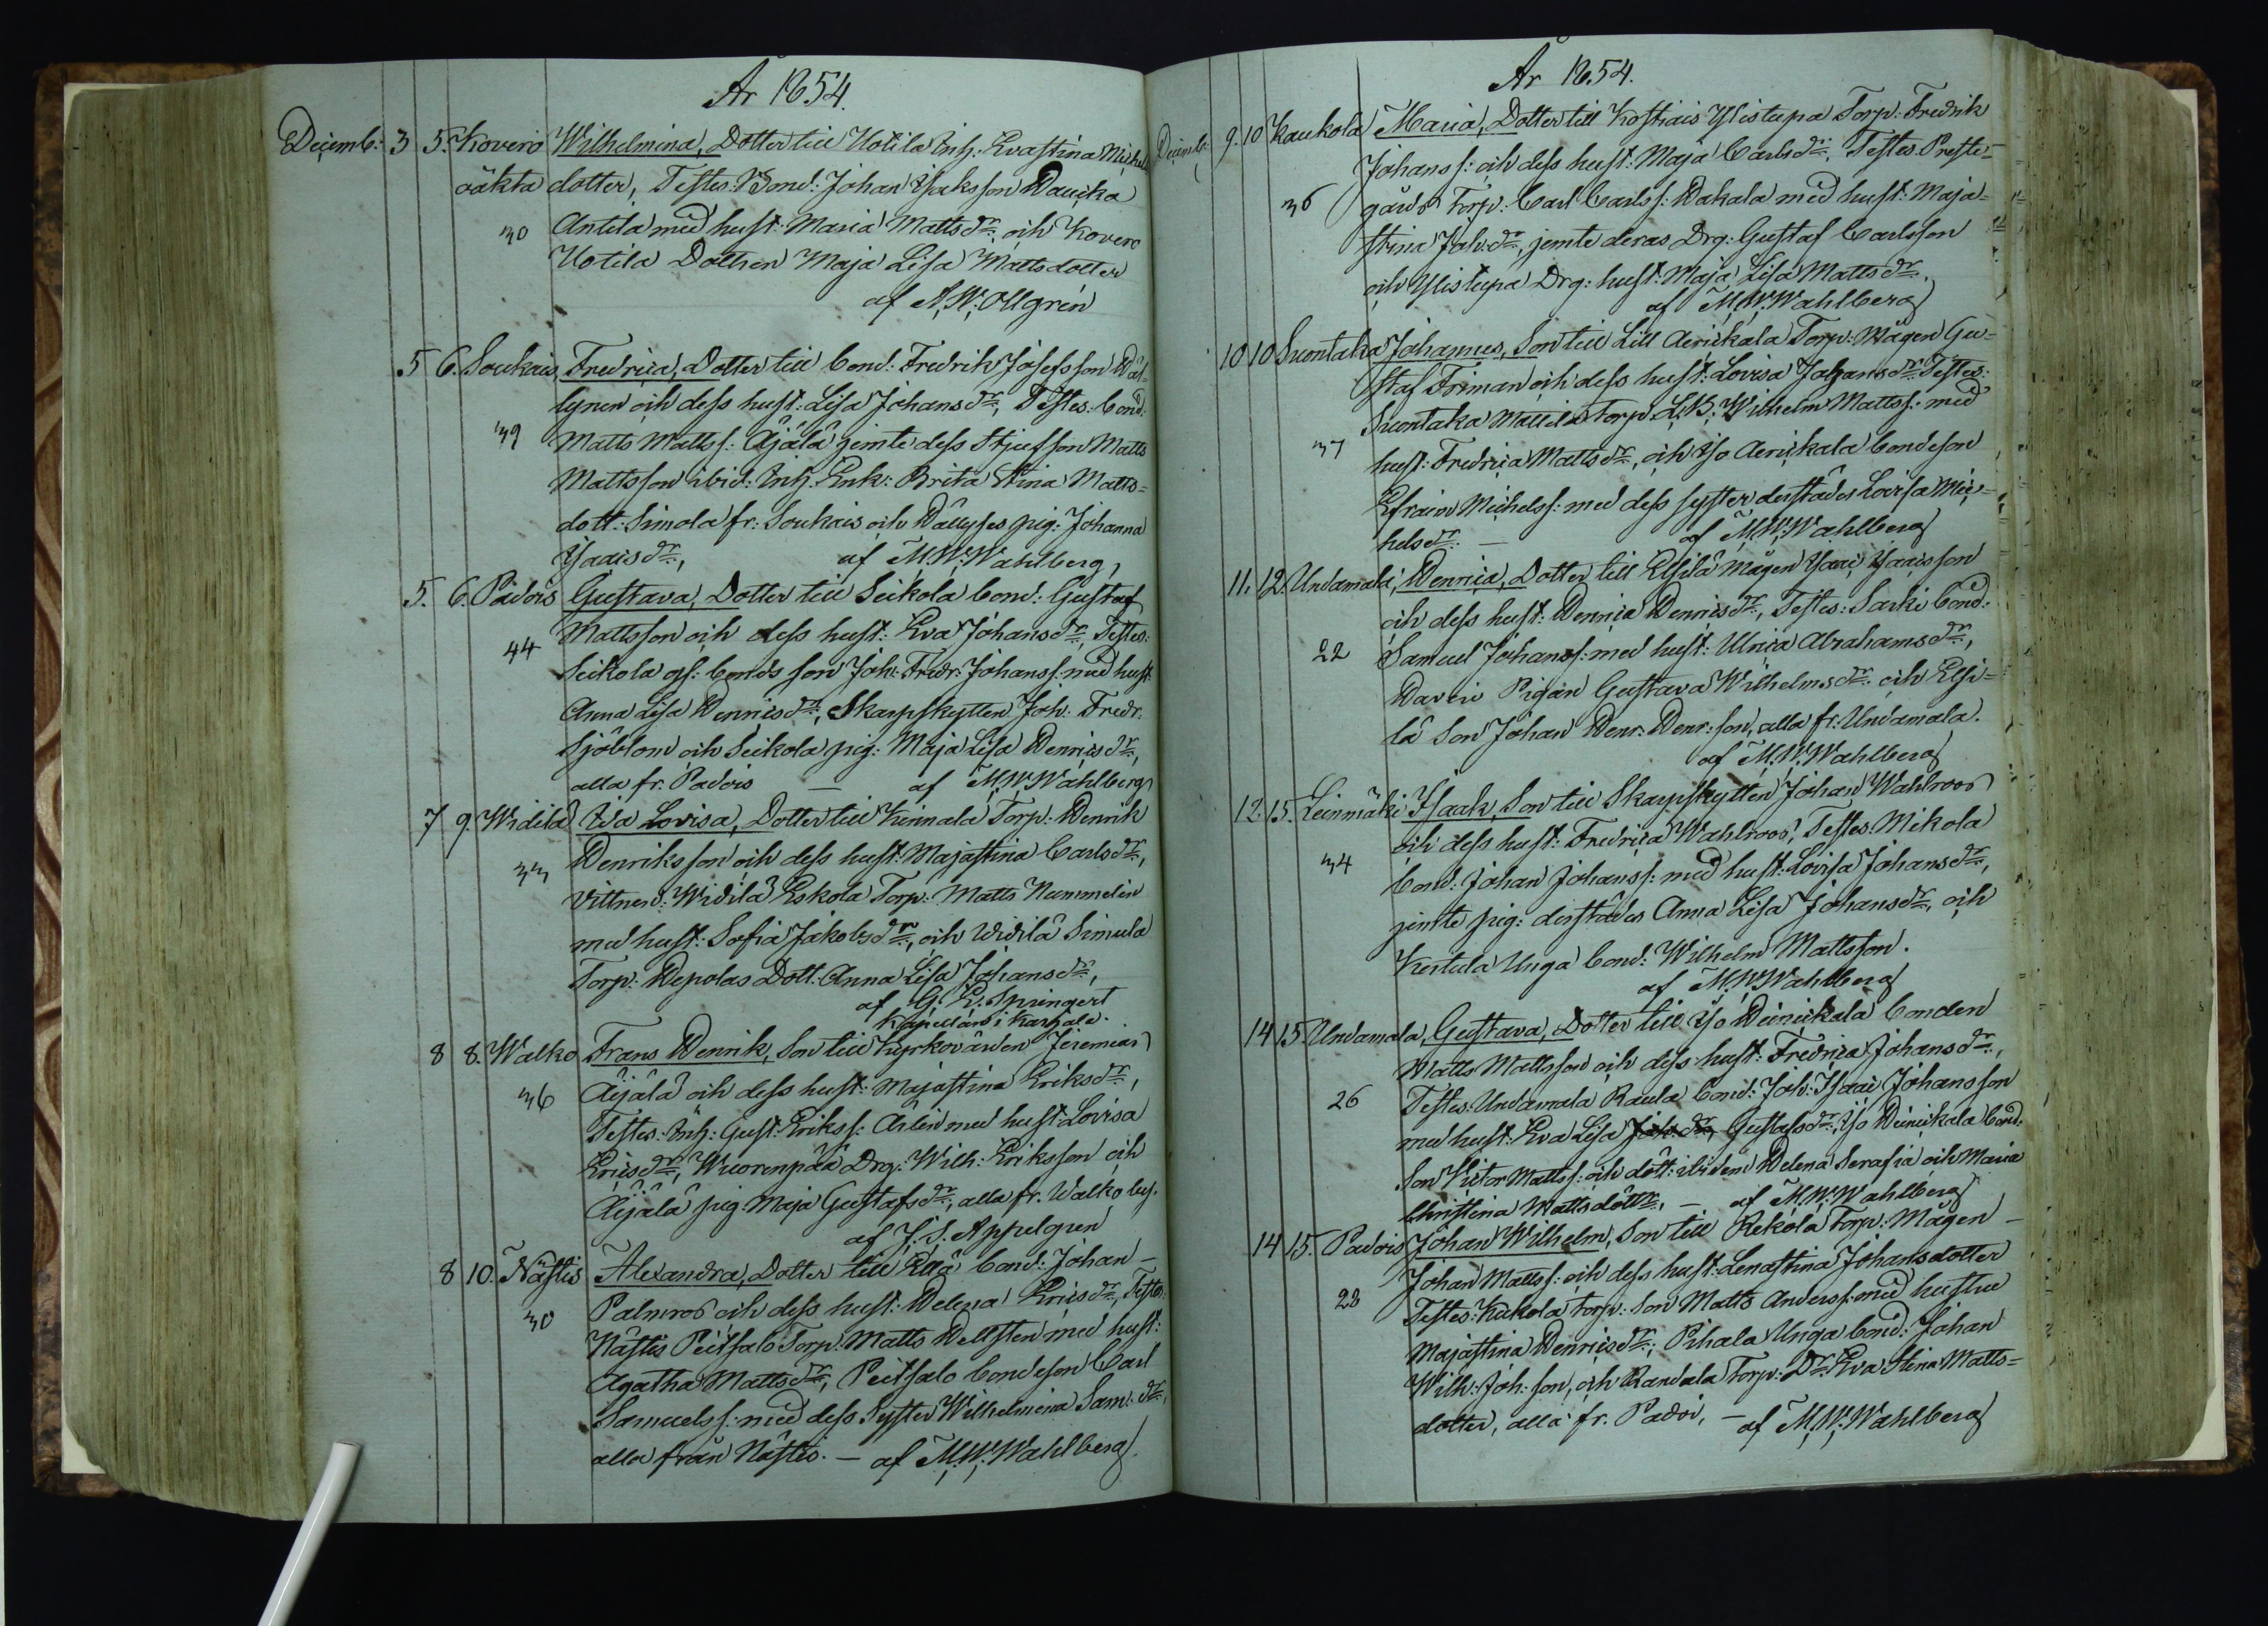 År 1854.
Decemb: 3 5. Kovero Wilhelmina, Dotter till Uotila Inh: Evastina Michels
oäkta dotter, Testes: Bond: Johan Isaksson Hauska
30 Antila med hust: Maria Mattsdr och Kovero
Uotila Dottren Maja Lisa Mattsdotter
af A.W. Ollgrén
5 6. Soukais, Fredrica, Dotter till bond: Fredrik Josefsson Häl-
lynen och dess hust: Lisa Johansdr, Testes: bond:
39 Matts Mattss: Äjälä jemte dess Stjufson Matts
Mattsson ibid: Inh. Enk: Brita Stina Matts-
dott: Simola fr: Soukais och Hällyses pig: Johanna
Isaacsdr, af M.W. Wahlberg,
5. 6. Padois Gustava, Dotter till Seikola bond: Gustaf
Mattsson och dess hust: Eva Johansdr, Testes:
44 Seikola gl: bonds son Joh: Fredr: Johanss: med hust
Anna Lisa Henricsdr, Skarpskytten Joh: Fredr:
Sjöblom och Seikola pig: Maja Lisa Henricsdr,
alla fr: Padois — af M.W. Wahlberg
7 9. Widilä Ida Lovisa, Dotter till Kinnala Torp: Henrik
33 Henriksson och dess hust: Majastina Carlsdr,
Vittnen: Widilä Eskola Torp: Matts Nummelin
med hust: Sofia Jakobsdr, och Widilä Simula
Torp: Hepolas Dott: Anna Lisa Johansdr,
af G. E. Springert
Kapellan i Karjala.
8 8. Walko Frans Henrik, Son till Kyrkovärden Jeremias
36 Äijälä och dess hust: Majastina Eriksdr,
Testes: Inh: Gust: Erikss: Arlin med hust: Lovisa
Ericsdr, Wuorenpää Drg: Wilh: Eriksson och
Äijälä pig: Maja Gustafsdr, alla fr. Walko by.
af J. S. Appelgren
8 10. Nästis Alexandra, Dotter till Ellä bond: Johan
30 Palmroos och dess hust: Helena Ericsdr, Testes:
Nästis Peitsalo Torp: Matts Hellsten med hust:
Agatha Mattsdr, Peitsalo bondeson Carl
Samuelss: med dess Syster Wilhelmina Sam:dr,
alla från Nästis. — af M.W. Wahlberg.
År 1854.
Decemb: 9. 10 Kaukola Maria, Dotter till Kostiais Ylistupa Torp: Fredrik
Johanss: och dess hust: Maja Carlsdr, Testes: Preste-
36 gårds Torp: Carl Carlss: Hakala med hust: Maja-
stina Joh:dr, jemte deras Drg: Gustaf Carlsson
och Ylistupa Drg: hust: Maja Lisa Mattsdr.
af M.W. Wahlberg
10 10 Suontaka Johannes, Son till Lill Aerickala Torp: Mågen Gu-
staf Friman och dess hust: Lovisa Johansdr Testes:
Suontaka Mattila Torp: L.B. Wilhelm Mattss: med
37 hust: Fredrica Mattsdr, och Iso Aerickala bondeson
Efraim Michelss: med dess syster derstädes Lovisa Mic-
helsdr. — af M.W. Wahlberg
11. 12. Undamala, Henrica, Dotter till Elsilä Mågen Isaac Isaacsson
och dess hust: Henrica Henricsdr, Testes: Sarki bond:
22 Samuel Johanss: med hust: Ulrica Abrahamsdr,
Haveri Pigan Gustava Wilhelmsdr och Elsi-
lä Son Johan Henr: Henr:son, alla fr: Undamala.
af M.W. Wahlberg
12. 15. Leinmäki Isaak, Son till Skarpskytten Johan Wahlroos
och dess hust: Fredrica Wahlroos, Testes: Mikola
34 bond: Johan Johanss: med hust: Lovisa Johansdr,
jemte pig: derstädes Anna Lisa Johansdr, och
Kertula Unga bond: Wilhelm Mattsson.
af M.W. Wahlberg
14 15 Undamala, Gustava, Dotter till Iso Heinickala bonden
Matts Mattsson och dess hust: Fredrica Johansdr,
26 Testes: Undamala Raula bond: Joh: Isaac Johansson
med hust: Eva Lisa Joh:dr, Gustafsdr, Iso Heinickala bond:
Son Victor Mattss: och dott: ibidem Helena Serafia och Maria
Christina Mattsdöttr. — af M.W. Wahlberg
14 15. Padois Johan Wilhelm, Son till Rekola Torp: Mågen
Johan Mattss: och dess hust: Lenastina Johansdotter
28 Testes: Kukola Torp: Son Matts Anderss: med hustru
Majastina Henricsdr, Pihala Unga bond: Johan
Wilh: Joh:son, och Randala Torp: Dr Eva Stina Matts-
dotter, alla fr. Padoi, — af M.W. Wahlberg